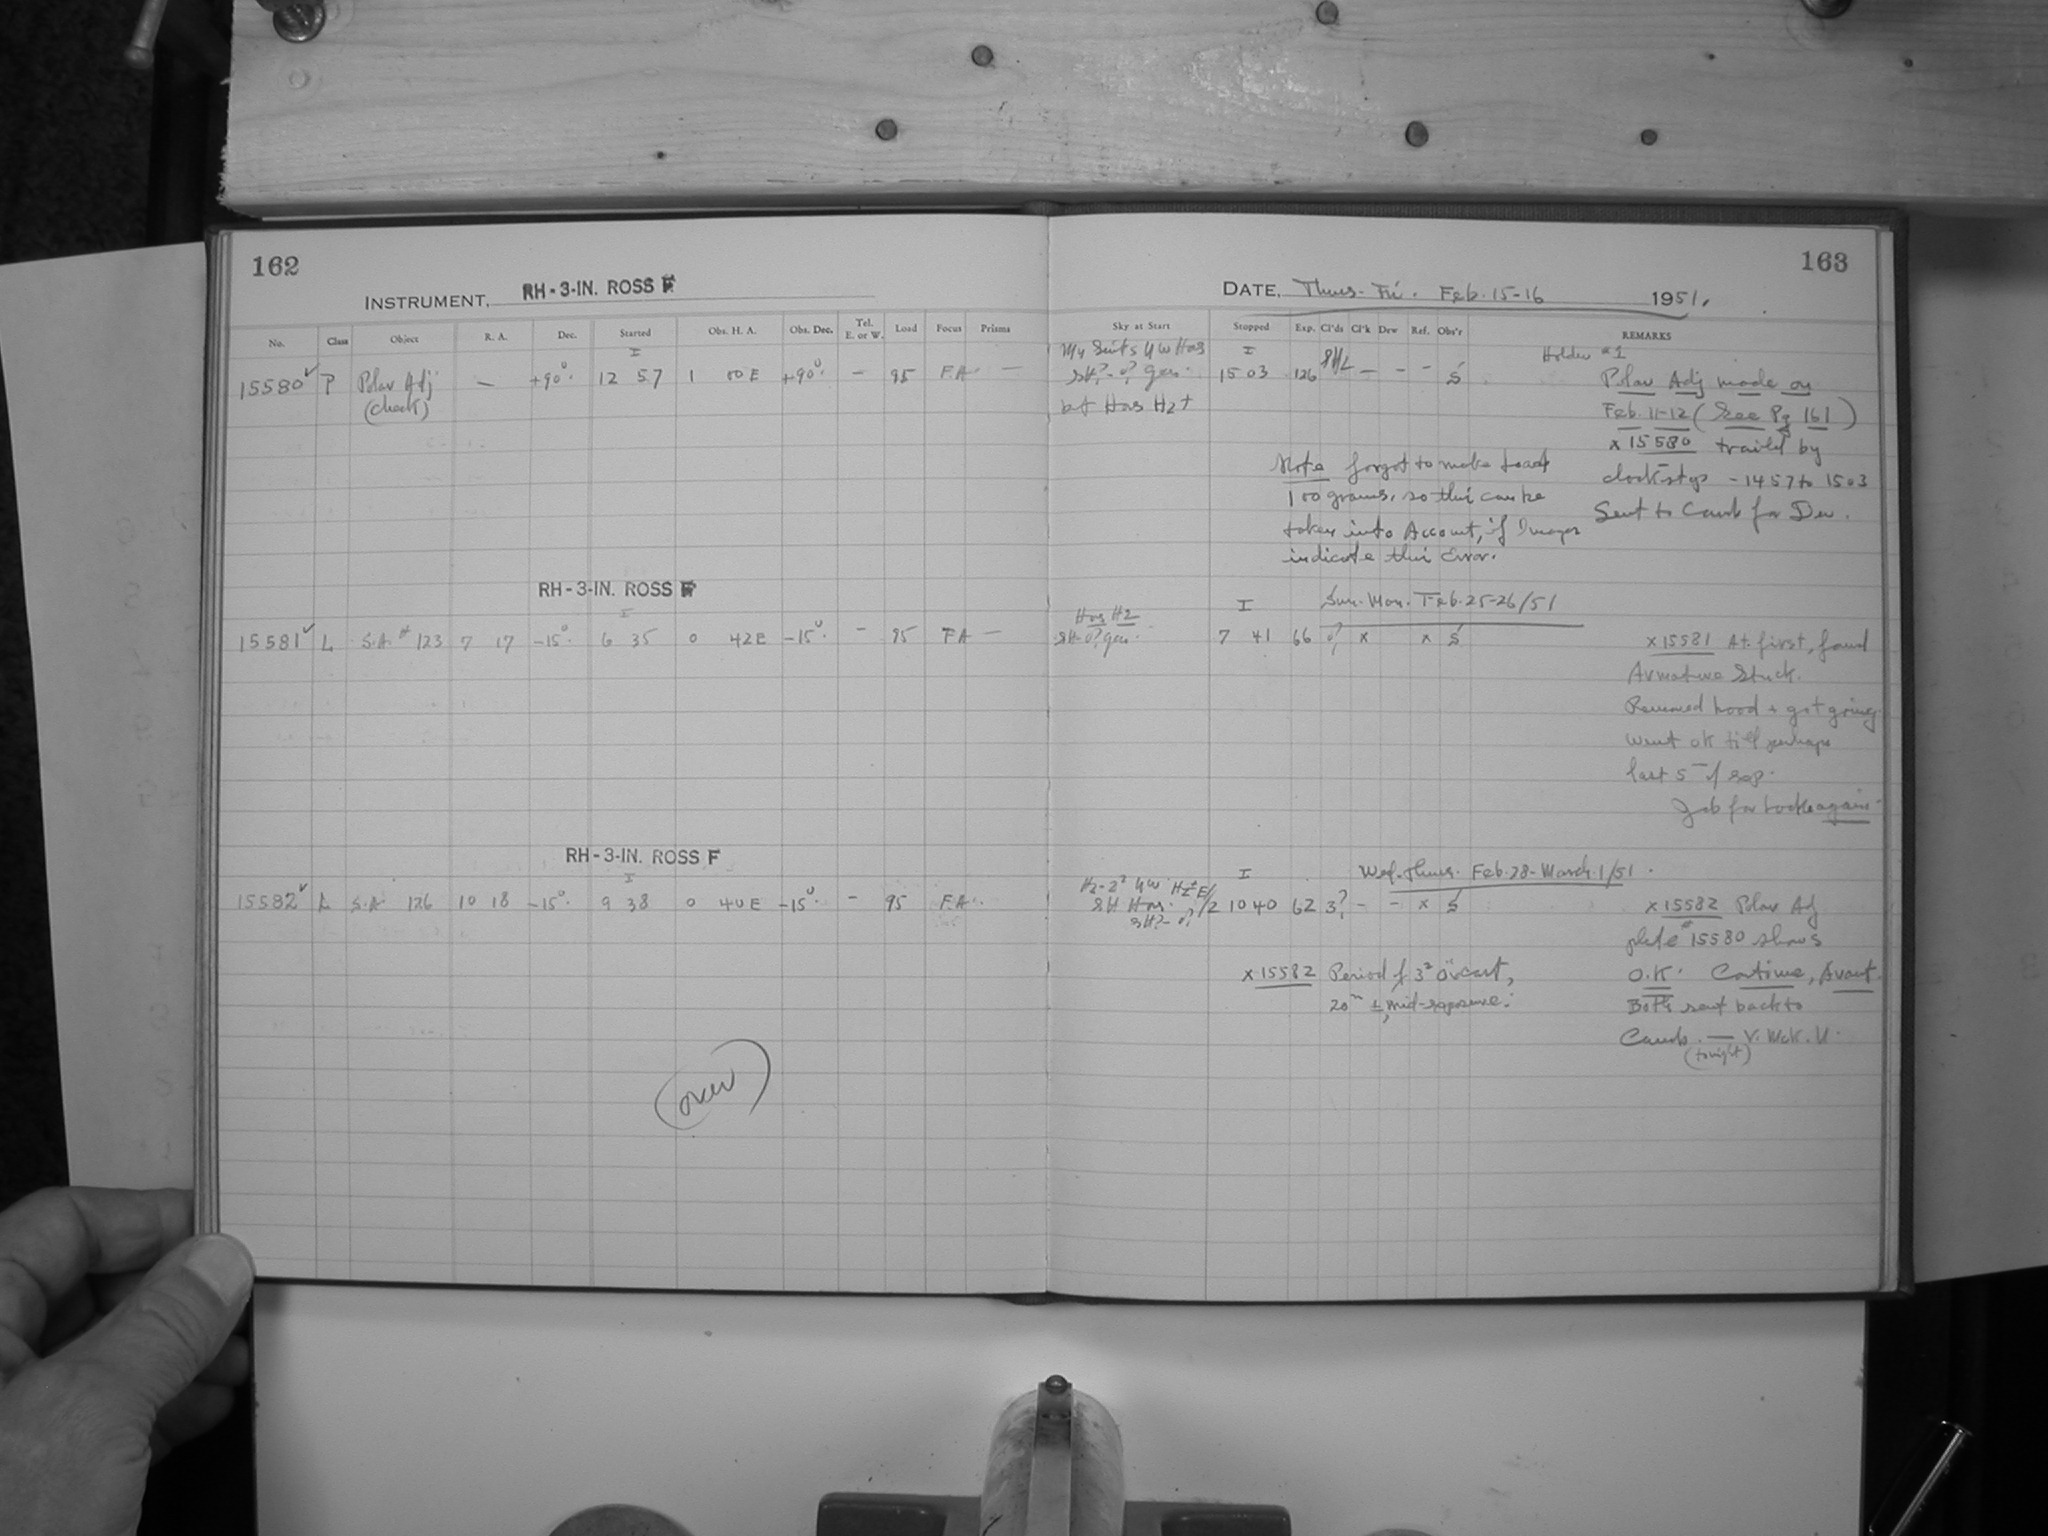 162
INSTRUMENT, RH-3-IN. ROSS F
No. Class Object R. A. Dec. Started Obs. H. A. Obs. Dec. Tel. E. or W. Load Focus Prisms
I
15580 ✓ P Polar Adj — +90°. 12 57 1 00 E +90°. — 95 FA. —
(check)
RH-3-IN. ROSS F
I
15581 ✓ L S.A. # 123 7 17 -15°. 6 35 0 42 E -15°. — 95 FA —
RH-3-IN. ROSS F
I
15582 ✓ L S.A. 126 10 18 -15°. 9 38 0 40 E -15°. — 95 FA.
(over)
163
DATE, Thurs-Fri. Feb. 15-16 1951.
Sky at Start Stopped Exp. Cl'ds Cl'k Dew Ref. Obs'r REMARKS
Holder #1
I
15 03 126 — — - S
but Hors Hz +
Polar Adj made on
Feb. 11-12 (See Pg 161)
x 15580 trailed by
clock stop - 1457 to 1503
Sent to Camb for Dev.
Note forgot to make Load
100 grams, so this can be
taken into Account, if
indicate this Error.
Sun. Mon. Feb. 25-26/51
Hors Hz
I
7 41 66 0? x x S
x 15581 At first, found
Armature Stuck.
Removed hood + got going
Went ok till perhaps
last 5 m of exp.
Job for Locke again
Wed-Thurs. Feb. 28-March 1/51.
I
10 40 62 3? - - x S
x 15582 Polar Adj
plate # 15580 shows
O.K. Continue, Avant.
Both sent back to
Camb. — V. McK. N.
(tonight)
x 15582 Period of 3² Ovcast,
20 m ±, mid-exposure.